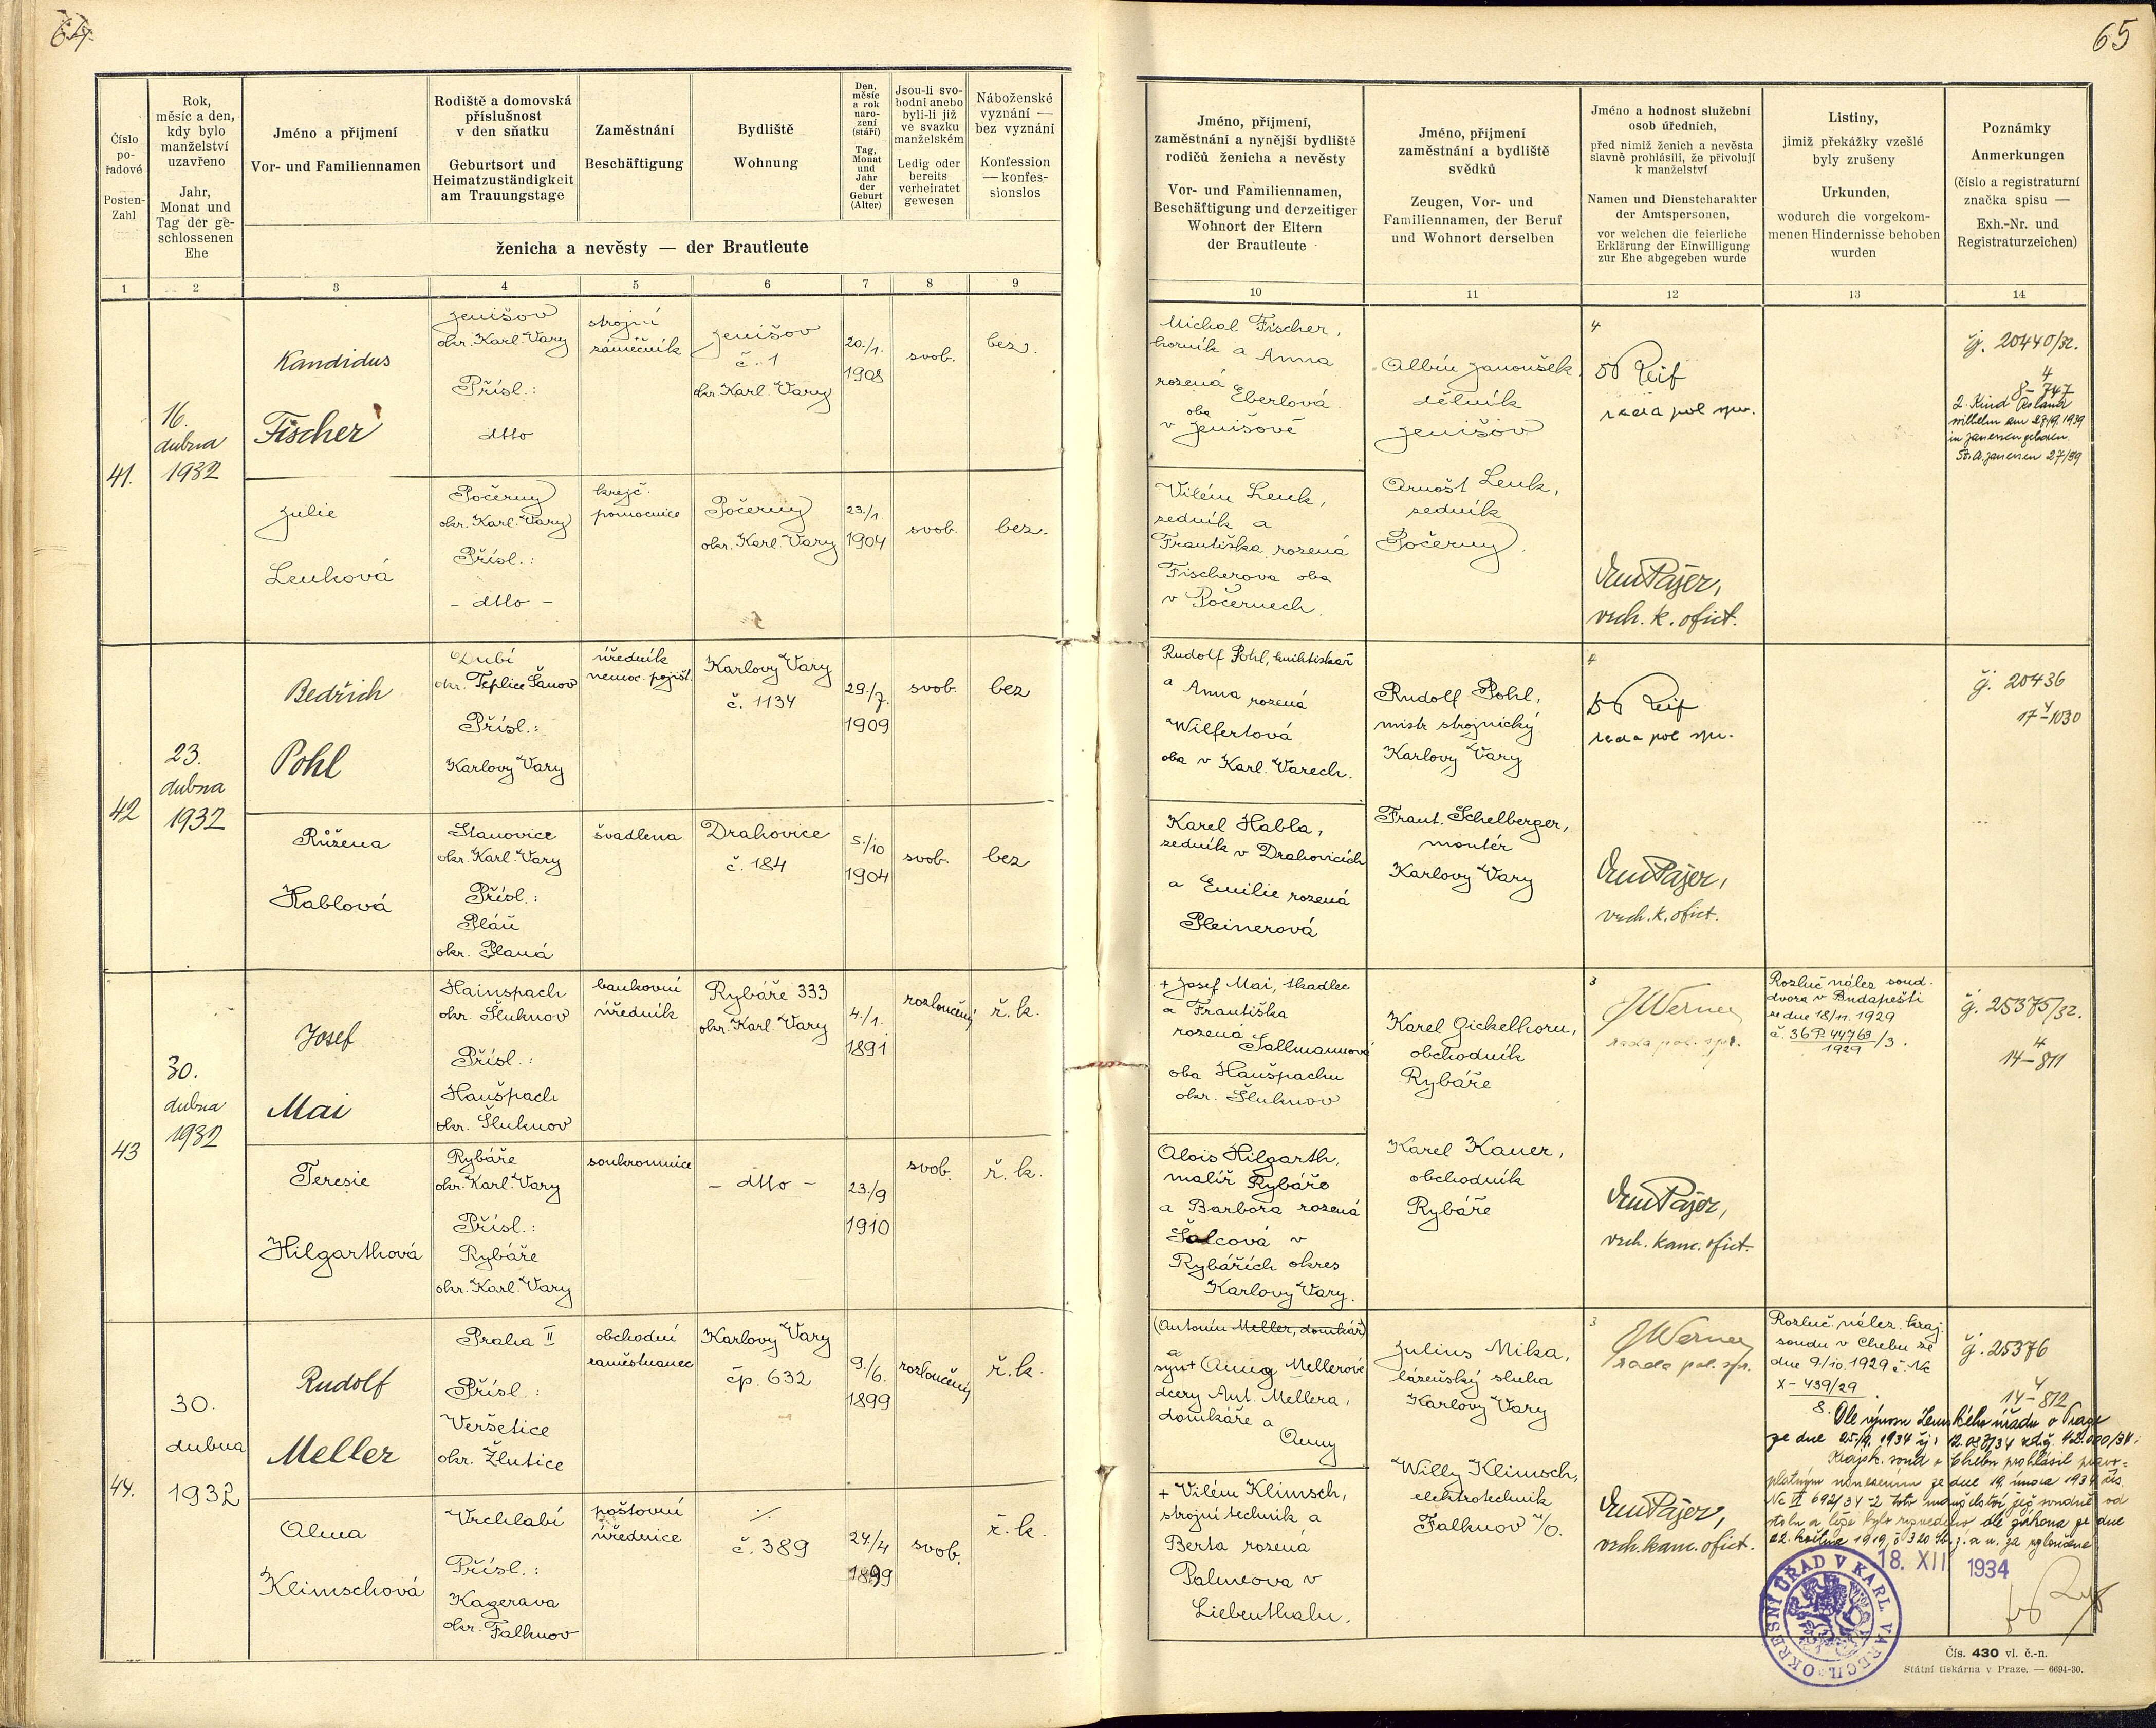 64.
65
Číslo
po-
řadové
Posten-
Zahl
Rok,
měsíc a den,
kdy bylo
manželství
uzavřeno
Jahr,
Monat und
Tag der ge-
schlossenen
Ehe
Jméno a přijmení
Vor- und Familiennamen
Rodiště a domovská
příslušnost
v den sňatku
Geburtsort und
Heimatzuständigkeit
am Trauungstage
Zaměstnání
Beschäftigung
Bydliště
Wohnung
Den,
měsíc
a rok
naro-
zení
(stáří)
Tag,
Monat
und
Jahr
der
Geburt
(Alter)
Jsou-li svo-
bodni anebo
byli-li již
ve svazku
manželském
Ledig oder
bereits
verheiratet
gewesen
Náboženské
vyznání —
bez vyznání
Konfession
— konfes-
sionslos
ženicha a nevěsty — der Brautleute
Jméno, přijmení,
zaměstnání a nynější bydliště
rodičů ženicha a nevěsty
Vor- und Familiennamen,
Beschäftigung und derzeitiger
Wohnort der Eltern
der Brautleute
Jméno, přijmení
zaměstnání a bydliště
svědků
Zeugen, Vor- und
Familiennamen, der Beruf
und Wohnort derselben
Jméno a hodnost služební
osob úředních,
před nimiž ženich a nevěsta
slavně prohlásili, že přivolují
k manželství
Namen und Dienstcharakter
der Amtspersonen,
vor welchen die feierliche
Erklärung der Einwilligung
zur Ehe abgegeben wurde
Listiny,
jimiž překážky vzešlé
byly zrušeny
Urkunden,
wodurch die vorgekom-
menen Hindernisse behoben
wurden
Poznámky
Anmerkungen
(číslo a registraturní
značka spisu —
Exh.-Nr. und
Registraturzeichen)
1 2 3 4 5 6 7 8 9 10 11 12 13 14
41.
16.
dubna
1932
Kandidus
Fischer
Jenišov
okr. Karl. Vary
Přísl.:
dtto
strojní
zámečník
Jenišov
č. 1
okr. Karl. Vary
20./1.
1908
svob.
bez.
Michal Fischer,
horník a Anna
rozená
Eberlová.
oba
v Jenišově
Albín Janoušek,
dělník
Jenišov
4
Reif
rada pol. spr.
čj. 20440/32.
4
8-747
2. Kind Roland
Wilhelm am 28/9.1939
in Janessen geboren.
St. A. Janessen 27/39
Julie
Lenková
Počerny
okr. Karl. Vary
Přísl.:
- dtto -
krejč.
pomocnice
Počerny
okr. Karl. Vary
23./1.
1904
svob.
bez.
Vilém Lenk,
zedník a
Františka rozená
Fischerova oba
v Počernech.
Arnošt Lenk,
zedník
Počerny.
Pajer,
vrch. k. ofict.
42
23.
dubna
1932
Bedřich
Pohl
Dubí
okr. Teplice Šanov
Přísl.:
Karlovy Vary
úředník
nemoc. pojišt.
Karlovy Vary
č. 1134
29./7.
1909
svob.
bez
Rudolf Pohl, knihtiskař
a Anna rozená
Wilfertová
oba v Karl. Varech.
Rudolf Pohl,
mistr strojnický
Karlovy Vary
4
Reif
rada pol. spr.
čj. 20436
4
17-1030
Růžena
Hablová
Stanovice
okr. Karl. Vary
Přísl.:
Pláň
okr. Planá
švadlena
Drahovice
č. 184
5./10
1904
svob.
bez
Karel Habla,
zedník v Drahovicích
a Emilie rozená
Pleinerová
Frant. Schelberger,
montér
Karlovy Vary
Pajer,
vrch. k. ofict.
43
30.
dubna
1932
Josef
Mai
Hainspach
okr. Šluknov
Přísl.:
Haušpach
okr. Šluknov
bankovní
úředník
Rybáře 333
okr. Karl. Vary
4./1.
1891
rozloučený
ř. k.
+ Josef Mai, tkadlec
a Františka
rozená
Sallmannová
oba Haušpachu
okr. Šluknov
Karel Gickelhorn,
obchodník
Rybáře
3
Werner
rada pol. spr.
Rozluč. nález soud.
dvora v Budapešti
ze dne 18/11. 1929
č. 36 P. 44763/3.
1929
čj. 25375/32.
4
14-811
Teresie
Hilgarthová
Rybáře
okr. Karl. Vary
Přísl.:
Rybáře
okr. Karl. Vary
soukromnice
- dtto -
23./9
1910
svob.
ř. k.
Alois Hilgarth,
malíř Rybáře
a Barbora rozená
Šalcová v
Rybářích okres
Karlovy Vary.
Karel Kauer,
obchodník
Rybáře
Pajer,
vrch. kanc. ofict.
44.
30.
dubna
1932
Rudolf
Meller
Praha II
Přísl.:
Veršetice
okr. Žlutice
obchodní
zaměstnanec
Karlovy Vary
čp. 632
9./6.
1899
rozloučený
ř. k.
(Antonín Meller, domkář)
a
syn + Anny Mellerové
dcery Ant. Mellera,
domkáře a
Anny
Julius Mika,
lázeňský sluha
Karlovy Vary
3
Werner
rada pol. spr.
Rozluč. nález. kraj.
soudu v Chebu ze
dne 9/10. 1929 č. Nc
X-439/29.
8.
čj. 25376
4
14-812
Dle výnosu Zemského úřadu v Praze
ze dne 25./9. 1934 čj.
Krajsk. soud v Chebu prohlásil pravo=
platným usnesením ze dne 19. února 1934 čís.
Nc II 692/34-2 toto manželství jež soudně od
stolu a lože bylo rozvedeno dle zákona ze dne
22. května 1919, č. 320 Sb. z. a n. za rozloučené.
18. XII. 1934
Alma
Klimschová
Vrchlabí
Přísl.:
Kagerava
okr. Falknov
poštovní
úřednice
./.
č. 389
24/4
1899
svob.
ř. k.
+ Vilém Klimsch,
strojní technik a
Berta rozená
Palmeova v
Liebenthalu.
Willy Klimsch,
elektrotechnik
Falknov n/O.
Pajer,
vrch. kanc. ofict.
OKRESNÍ ÚŘAD V KARL. VARECH
Čís. 430 vl. č.-n.
Státní tiskárna v Praze. — 6694-30.